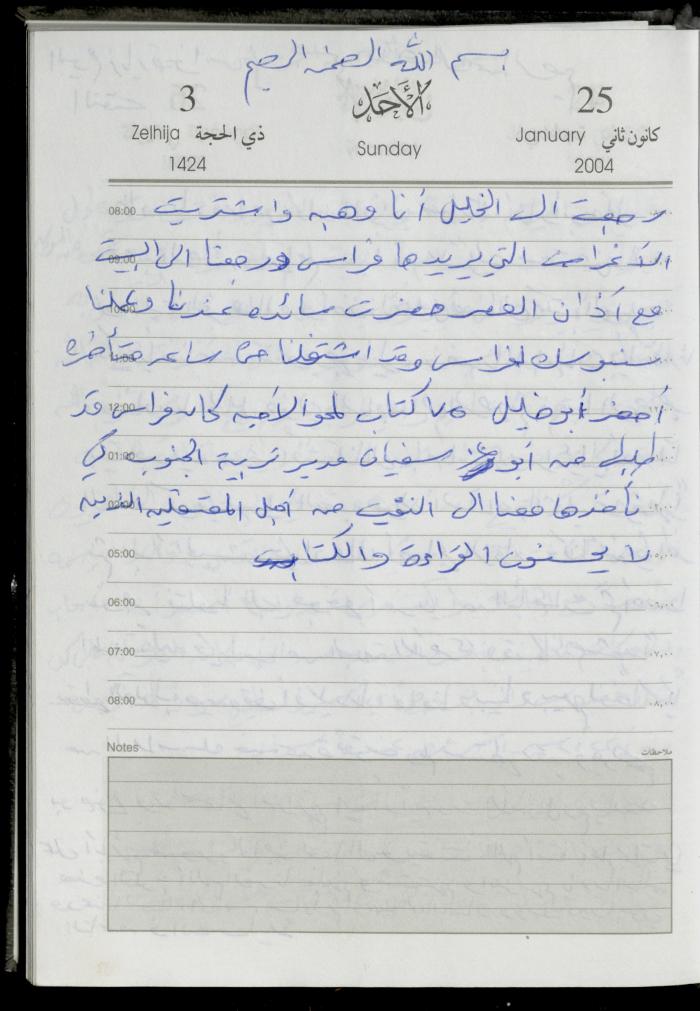 بسم الله الرحمن الرحيم
3 الأحد 25
Zelhija ذي الحجة Sunday January كانون ثاني
1424 2004
08:00 رجعت الى الخليل أنا وهبه واشتريت
09:00 الأغراض التي يريدها فراس ورجعنا الى البيت
10:00 مع آذان العصر حضرت سائده عندنا وعملنا
11:00 سنبوسك لفراس وقد اشتغلنا حتى ساعه متأخره
12:00 أحضر أبو خليل ٧٥ كتاب لمحو الأميه كان فراس قد
01:00 طلبها من أبو سفيان مدير تربية الجنوب كي
02:00 نأخذها معنا الى النقب من أجل المعتقلين الذين
05:00 لا يحسنون القراءة والكتابه
06:00
07:00
08:00
Notes ملاحظات